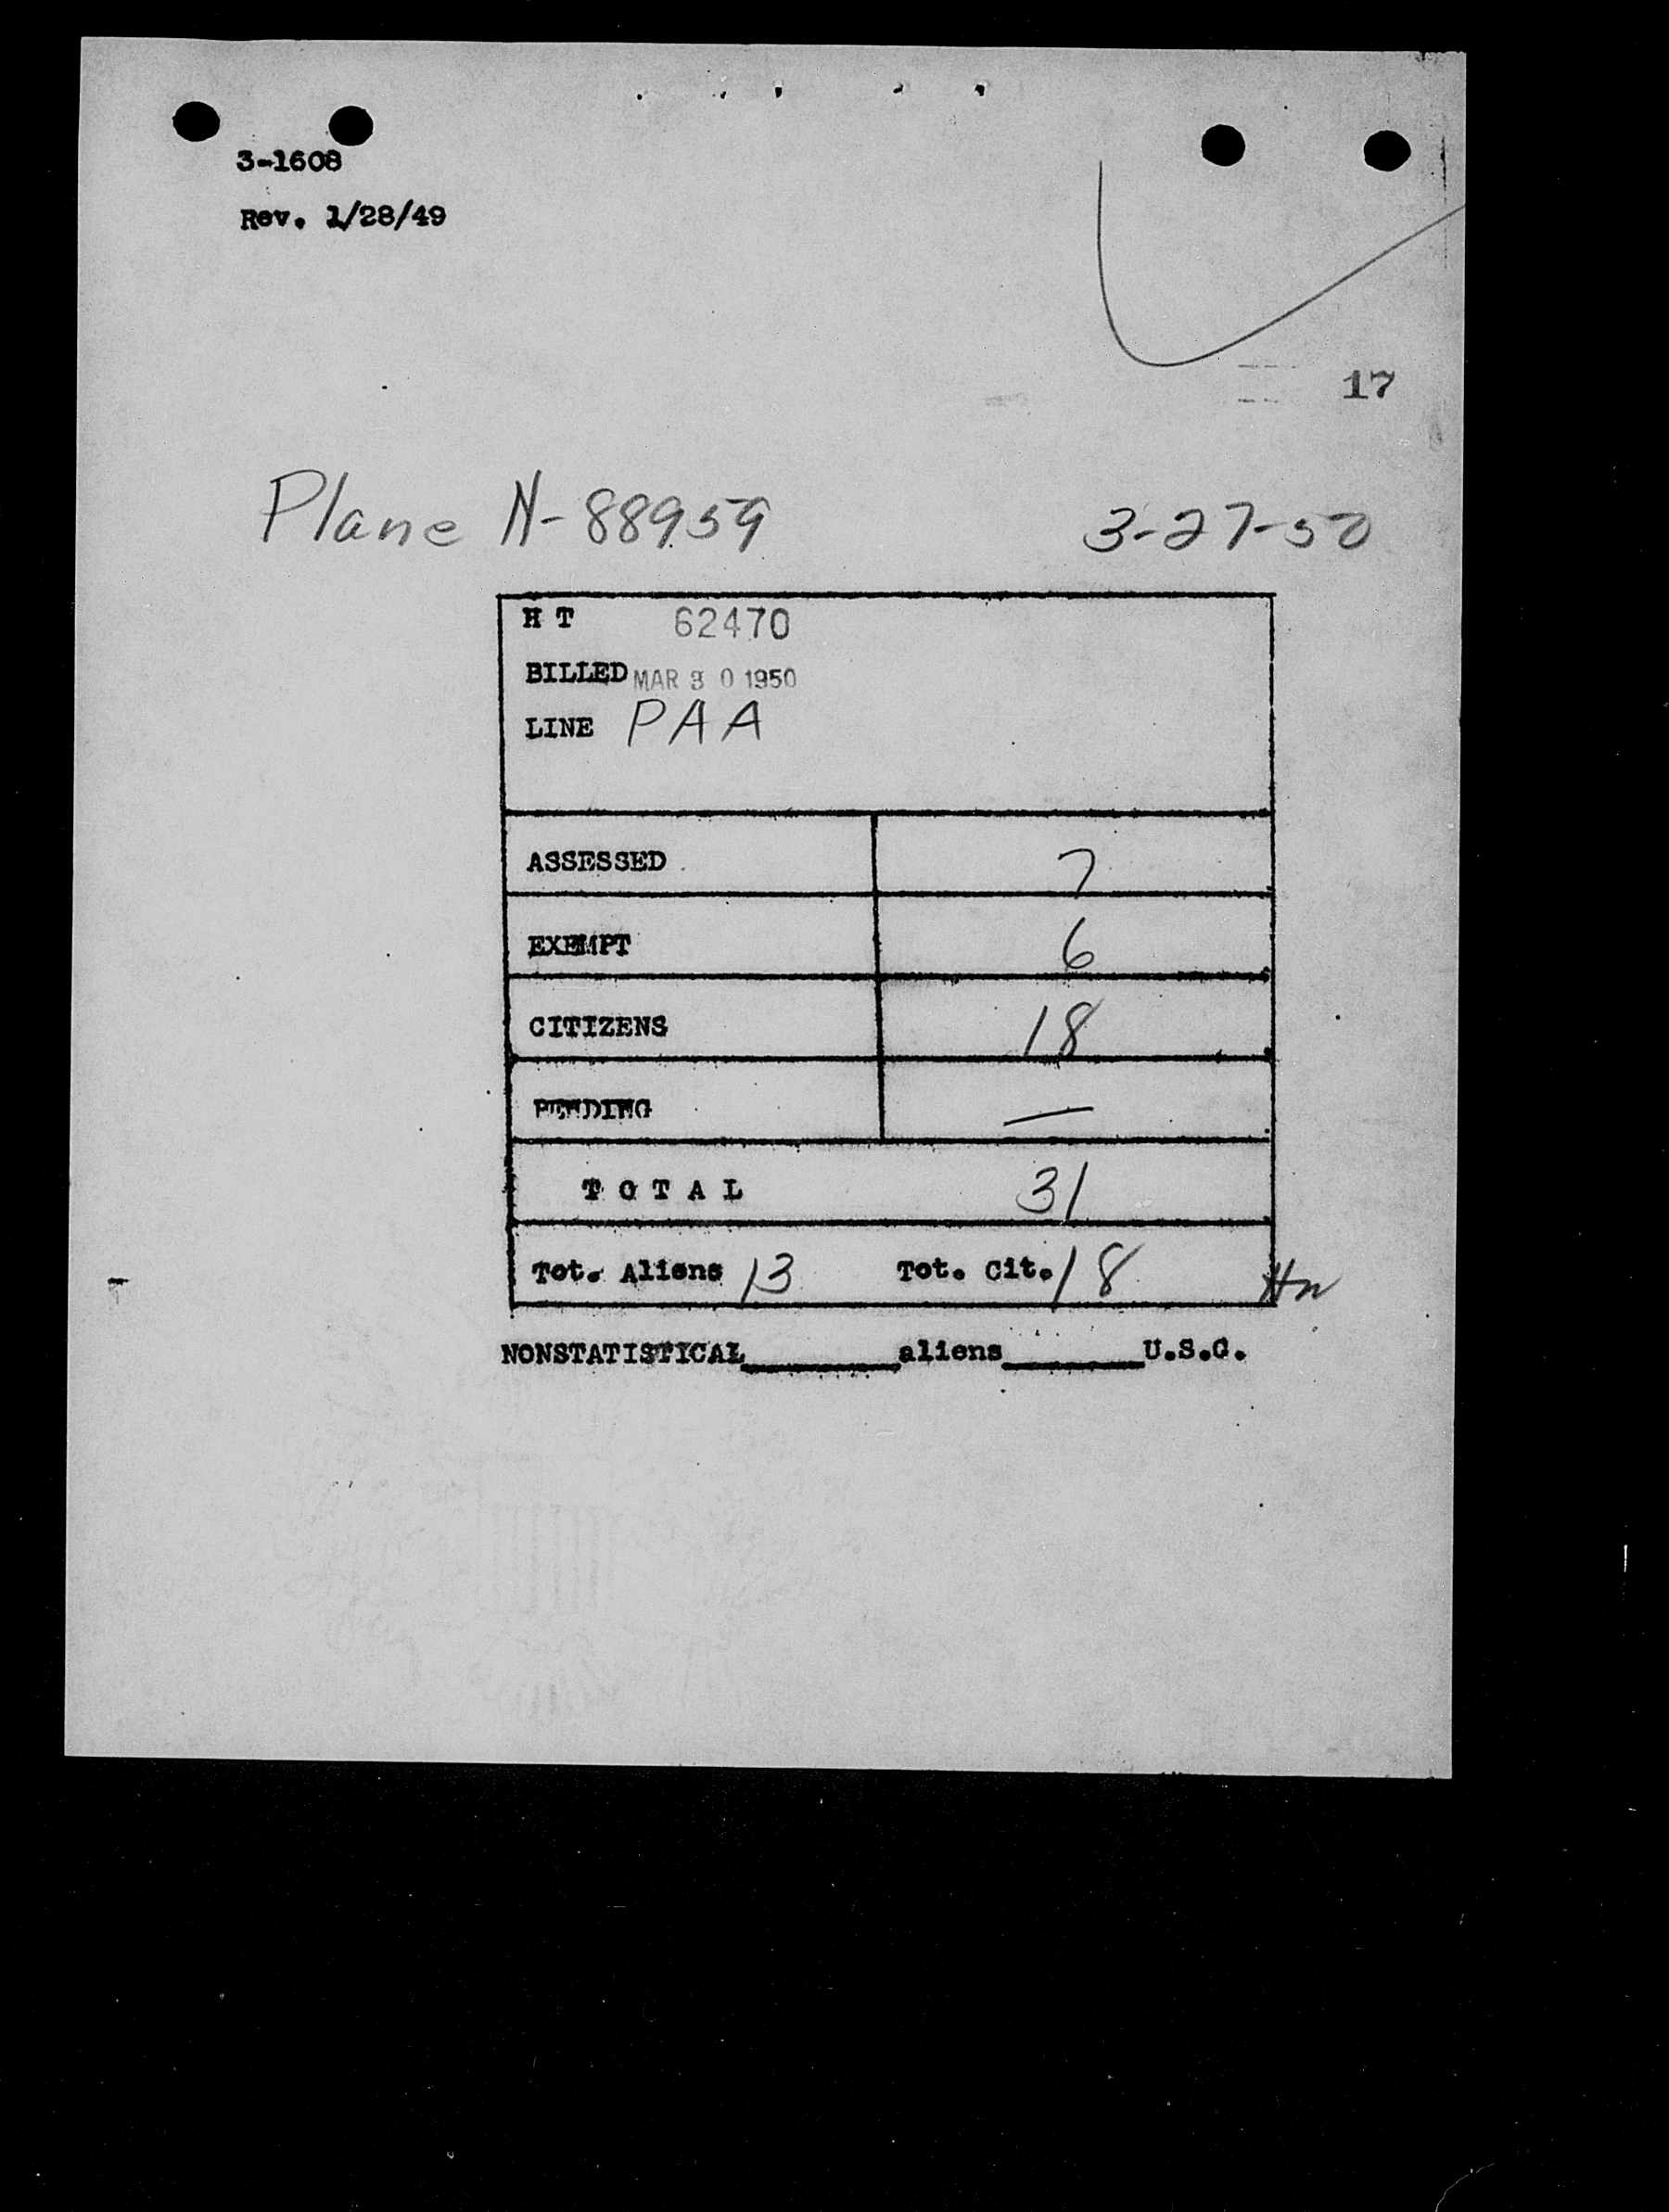 3-1608
Rev. 1/28/49
17
Plane N-88959 3-27-50
H T 62470
BILLED MAR 30 1950
LINE PAA
ASSESSED 7
EXEMPT 6
CITIZENS 18
PENDING —
TOTAL 31
Tot. Aliens 13 Tot. Cit. 18
NONSTATISTICAL________aliens________U.S.C.